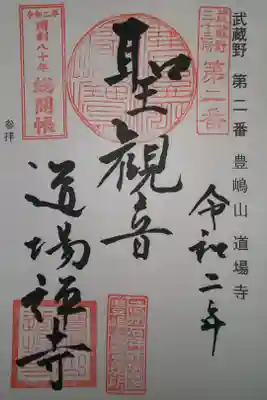 武蔵野 第二番 豊嶋山 道場寺
令和二年
武蔵野
三十三所
第二番
聖観音
道場禅寺
令和二年
開創八十年
総開帳
参拝